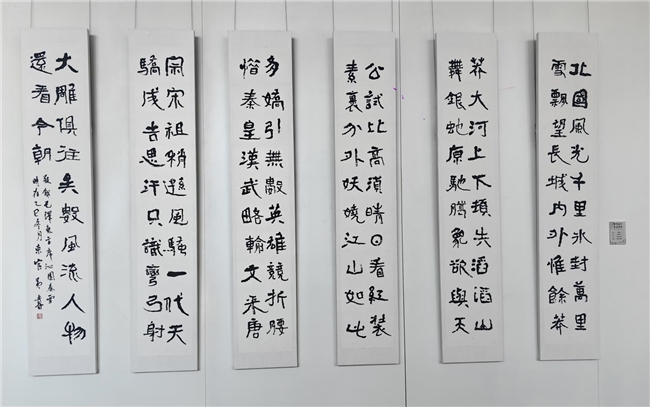 北國風光千里冰封萬里
雪飄望長城內外惟餘莽
莽大河上下頓失滔滔山
舞銀蛇原馳臘象欲與天
公試比高須晴日看紅裝
素裹分外妖嬈江山如此
多嬌引無數英雄競折腰
惜秦皇漢武略輸文采唐
宗宋祖稍遜風騷一代天
驕成吉思汗只識彎弓射
大雕俱往矣數風流人物
還看今朝
敬錄毛澤東主席沁園春雪
時在乙巳冬月